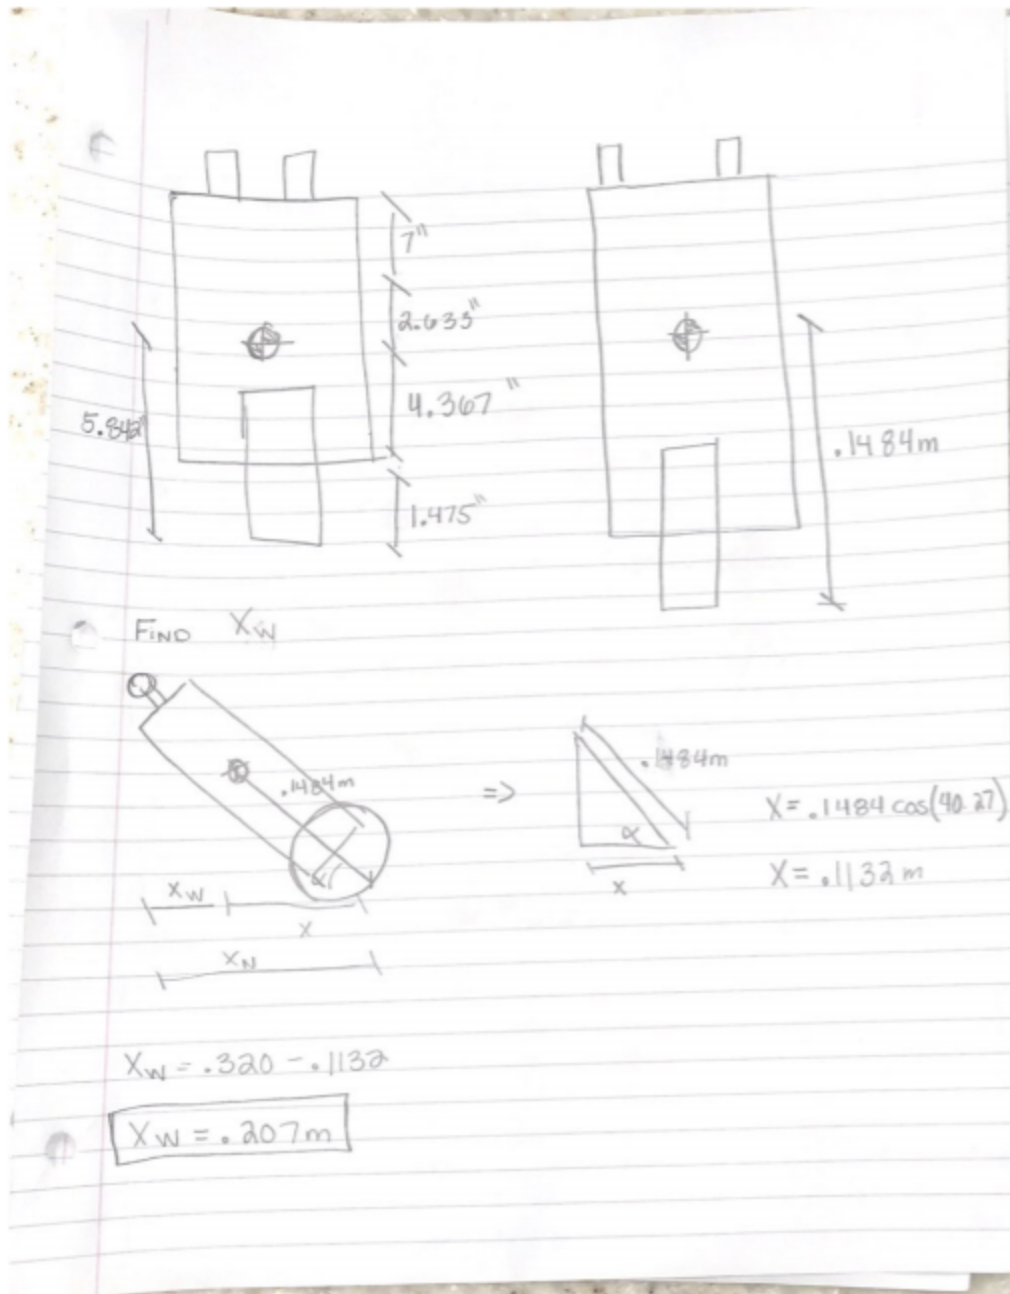 7"
2.633"
4.367"
5.842"
1.475"
.1484m
FIND XW
.1484m
.1484m
=>
α
α
x
X = .1484 cos(40.27)
X = .1132 m
XW
X
XN
XW = .320 - .1132
XW = .207m